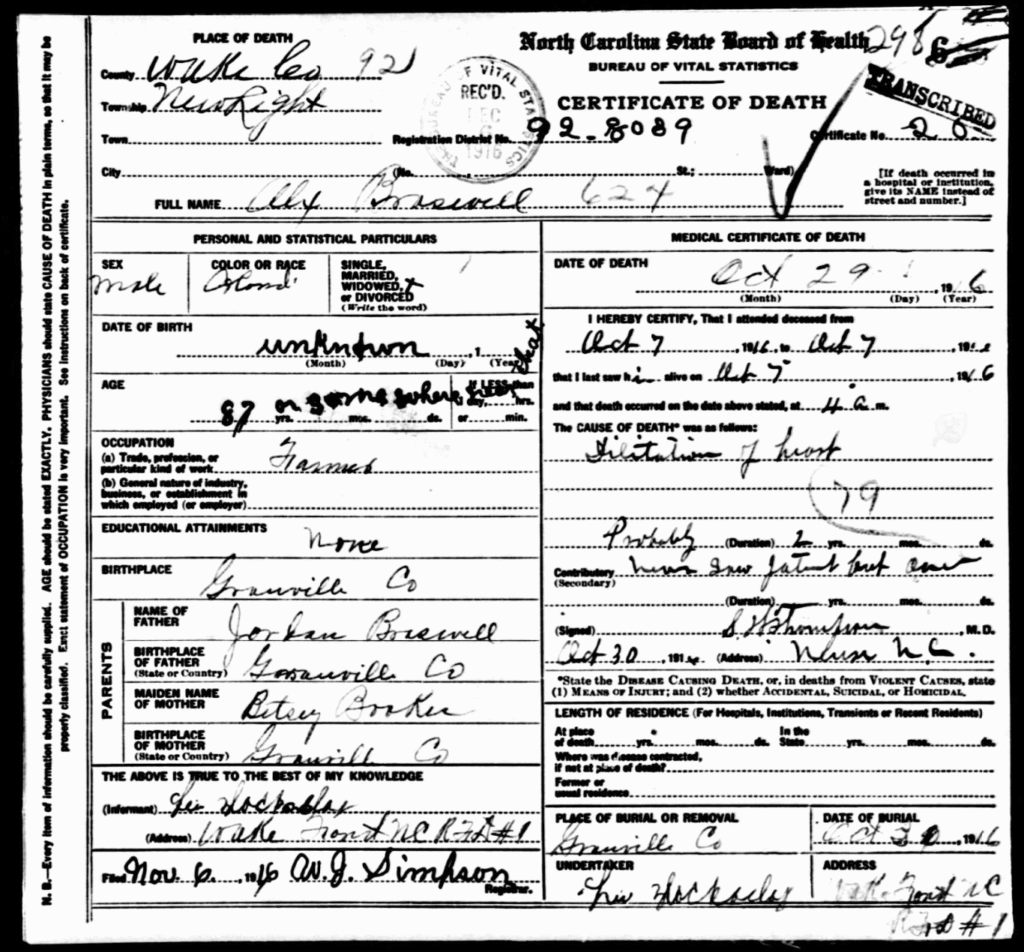 PLACE OF DEATH
County Wake Co 921
Township New Light
Town
City
North Carolina State Board of Health 298
BUREAU OF VITAL STATISTICS
CERTIFICATE OF DEATH
TRANSCRIBED
BUREAU OF VITAL STATISTICS
REC'D.
DEC
6
1916
Registration District No. 92-8089 Certificate No. 20
(No. , St.; Ward)
[If death occurred in a hospital or institution, give its NAME instead of street and number.]
FULL NAME Alx Braswell 624
PERSONAL AND STATISTICAL PARTICULARS
SEX
Male
COLOR OR RACE
SINGLE, MARRIED, WIDOWED, or DIVORCED
(Write the word)
DATE OF BIRTH
unknown , 1
(Month) (Day) (Year)
AGE
If LESS than
87 or some where near that
yrs. mos. ds. or min.
OCCUPATION
(a) Trade, profession, or particular kind of work Farmer
(b) General nature of industry, business, or establishment in which employed (or employer)
EDUCATIONAL ATTAINMENTS
None
BIRTHPLACE
Granville Co
PARENTS
NAME OF FATHER
Jordan Braswell
BIRTHPLACE OF FATHER
(State or Country) Granville Co
MAIDEN NAME OF MOTHER
Betsey
BIRTHPLACE OF MOTHER
(State or Country) Granville Co
THE ABOVE IS TRUE TO THE BEST OF MY KNOWLEDGE
(Informant)
(Address) Wake Forest NC RFD #1
Filed Nov. 6. , 1916 W. J. Simpson
Registrar.
MEDICAL CERTIFICATE OF DEATH
DATE OF DEATH
Oct 29 , 1916
(Month) (Day) (Year)
I HEREBY CERTIFY, That I attended deceased from
Oct 7 , 1916, to Oct 7 , 191
that I last saw hi alive on Oct 7 , 1916
and that death occurred on the date above stated, at 4 a m.
The CAUSE OF DEATH* was as follows:
Dilitation of heart
79
Probably (Duration) 2 yrs. mos. ds.
Contributory Never saw patient but once
(Secondary)
(Duration) yrs. mos. ds.
(Signed) S. W. Thompson , M. D.
Oct 30 , 191 (Address) Neuse N.C.
*State the DISEASE CAUSING DEATH, or, in deaths from VIOLENT CAUSES, state
(1) MEANS OF INJURY; and (2) whether ACCIDENTAL, SUICIDAL, or HOMICIDAL.
LENGTH OF RESIDENCE (For Hospitals, Institutions, Transients or Recent Residents)
At place of death yrs. mos. ds. In the State yrs. mos. ds.
Where was disease contracted, if not at place of death?
Former or usual residence
PLACE OF BURIAL OR REMOVAL
Granville Co
DATE OF BURIAL
Oct 30 1916
UNDERTAKER
ADDRESS
Wake Forest NC
RFD #1
N. B.—Every item of information should be carefully supplied. AGE should be stated EXACTLY. PHYSICIANS should state CAUSE OF DEATH in plain terms, so that it may be
properly classified. Exact statement of OCCUPATION is very important. See instructions on back of certificate.